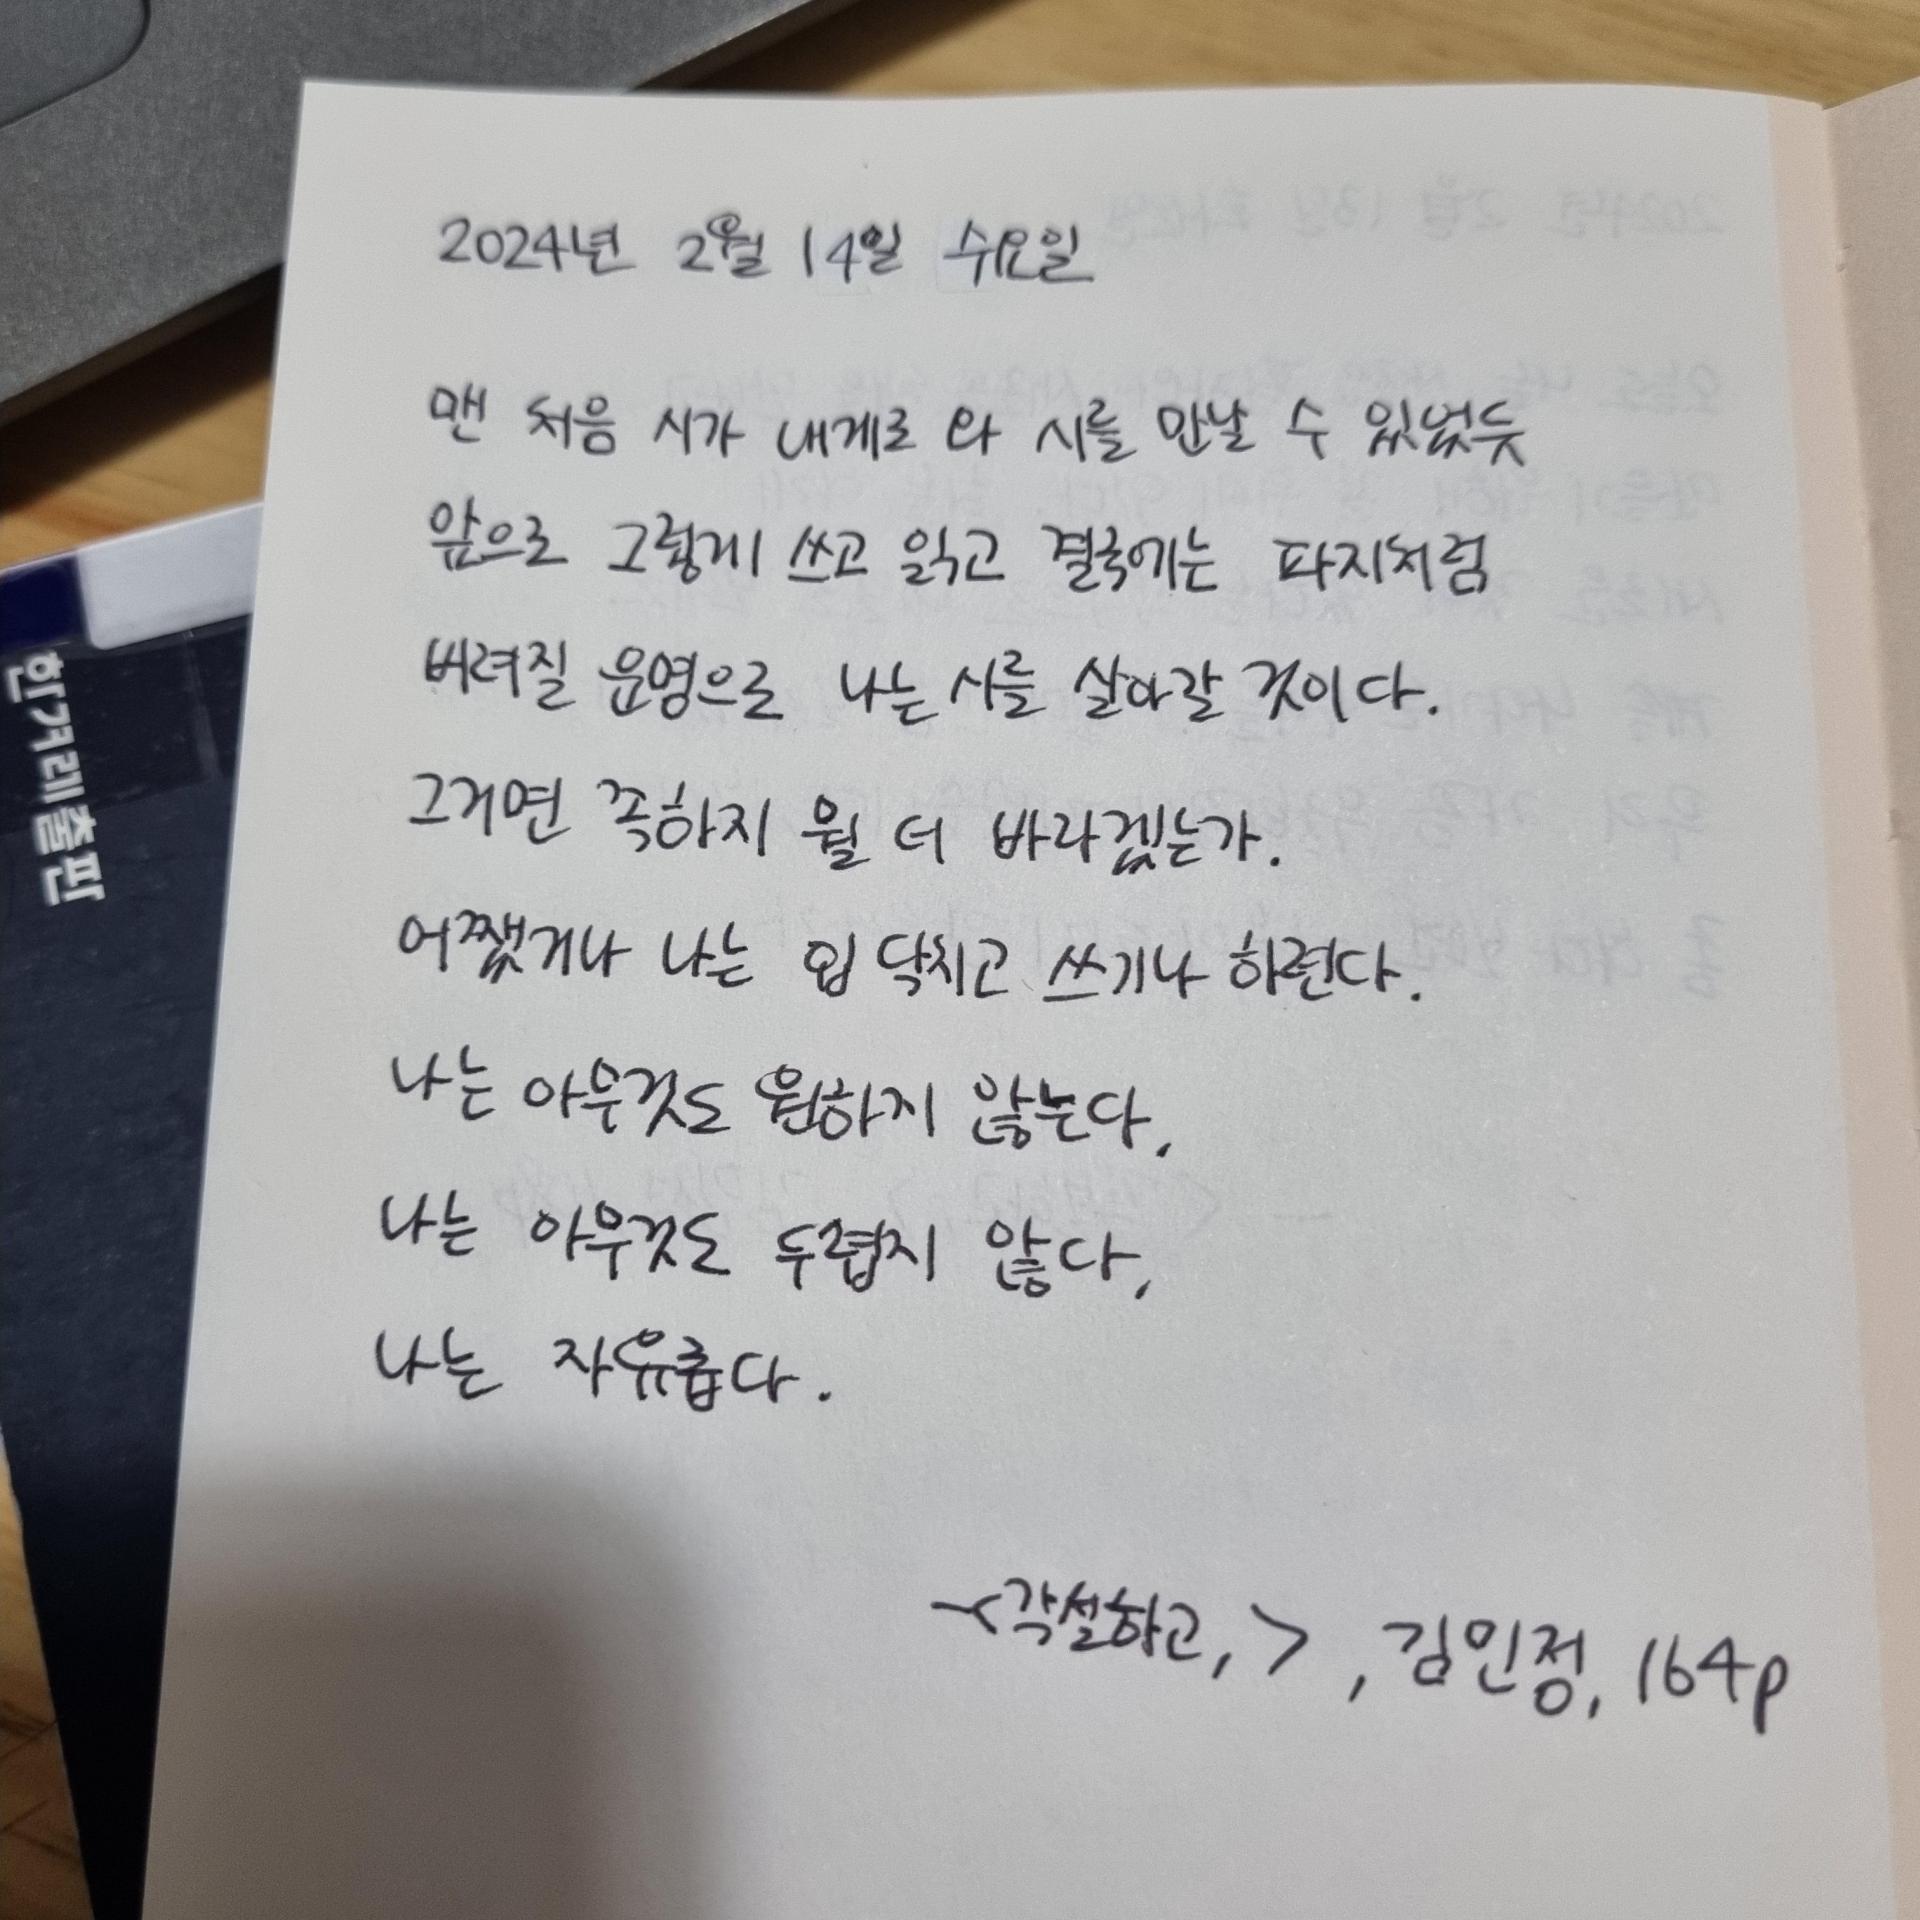 2024년 2월 14일 수요일
맨 처음 시가 내게로 와 시를 만날 수 있었듯
앞으로 그렇게 쓰고 읽고 결국에는 파지처럼
버려질 운명으로 나는 시를 살아갈 것이다.
그거면 족하지 뭘 더 바라겠는가.
어쨌거나 나는 입 닥치고 쓰기나 하련다.
나는 아무것도 원하지 않는다,
나는 아무것도 두렵지 않다,
나는 자유롭다.
-<각설하고,>, 김민정, 164p
한겨레출판